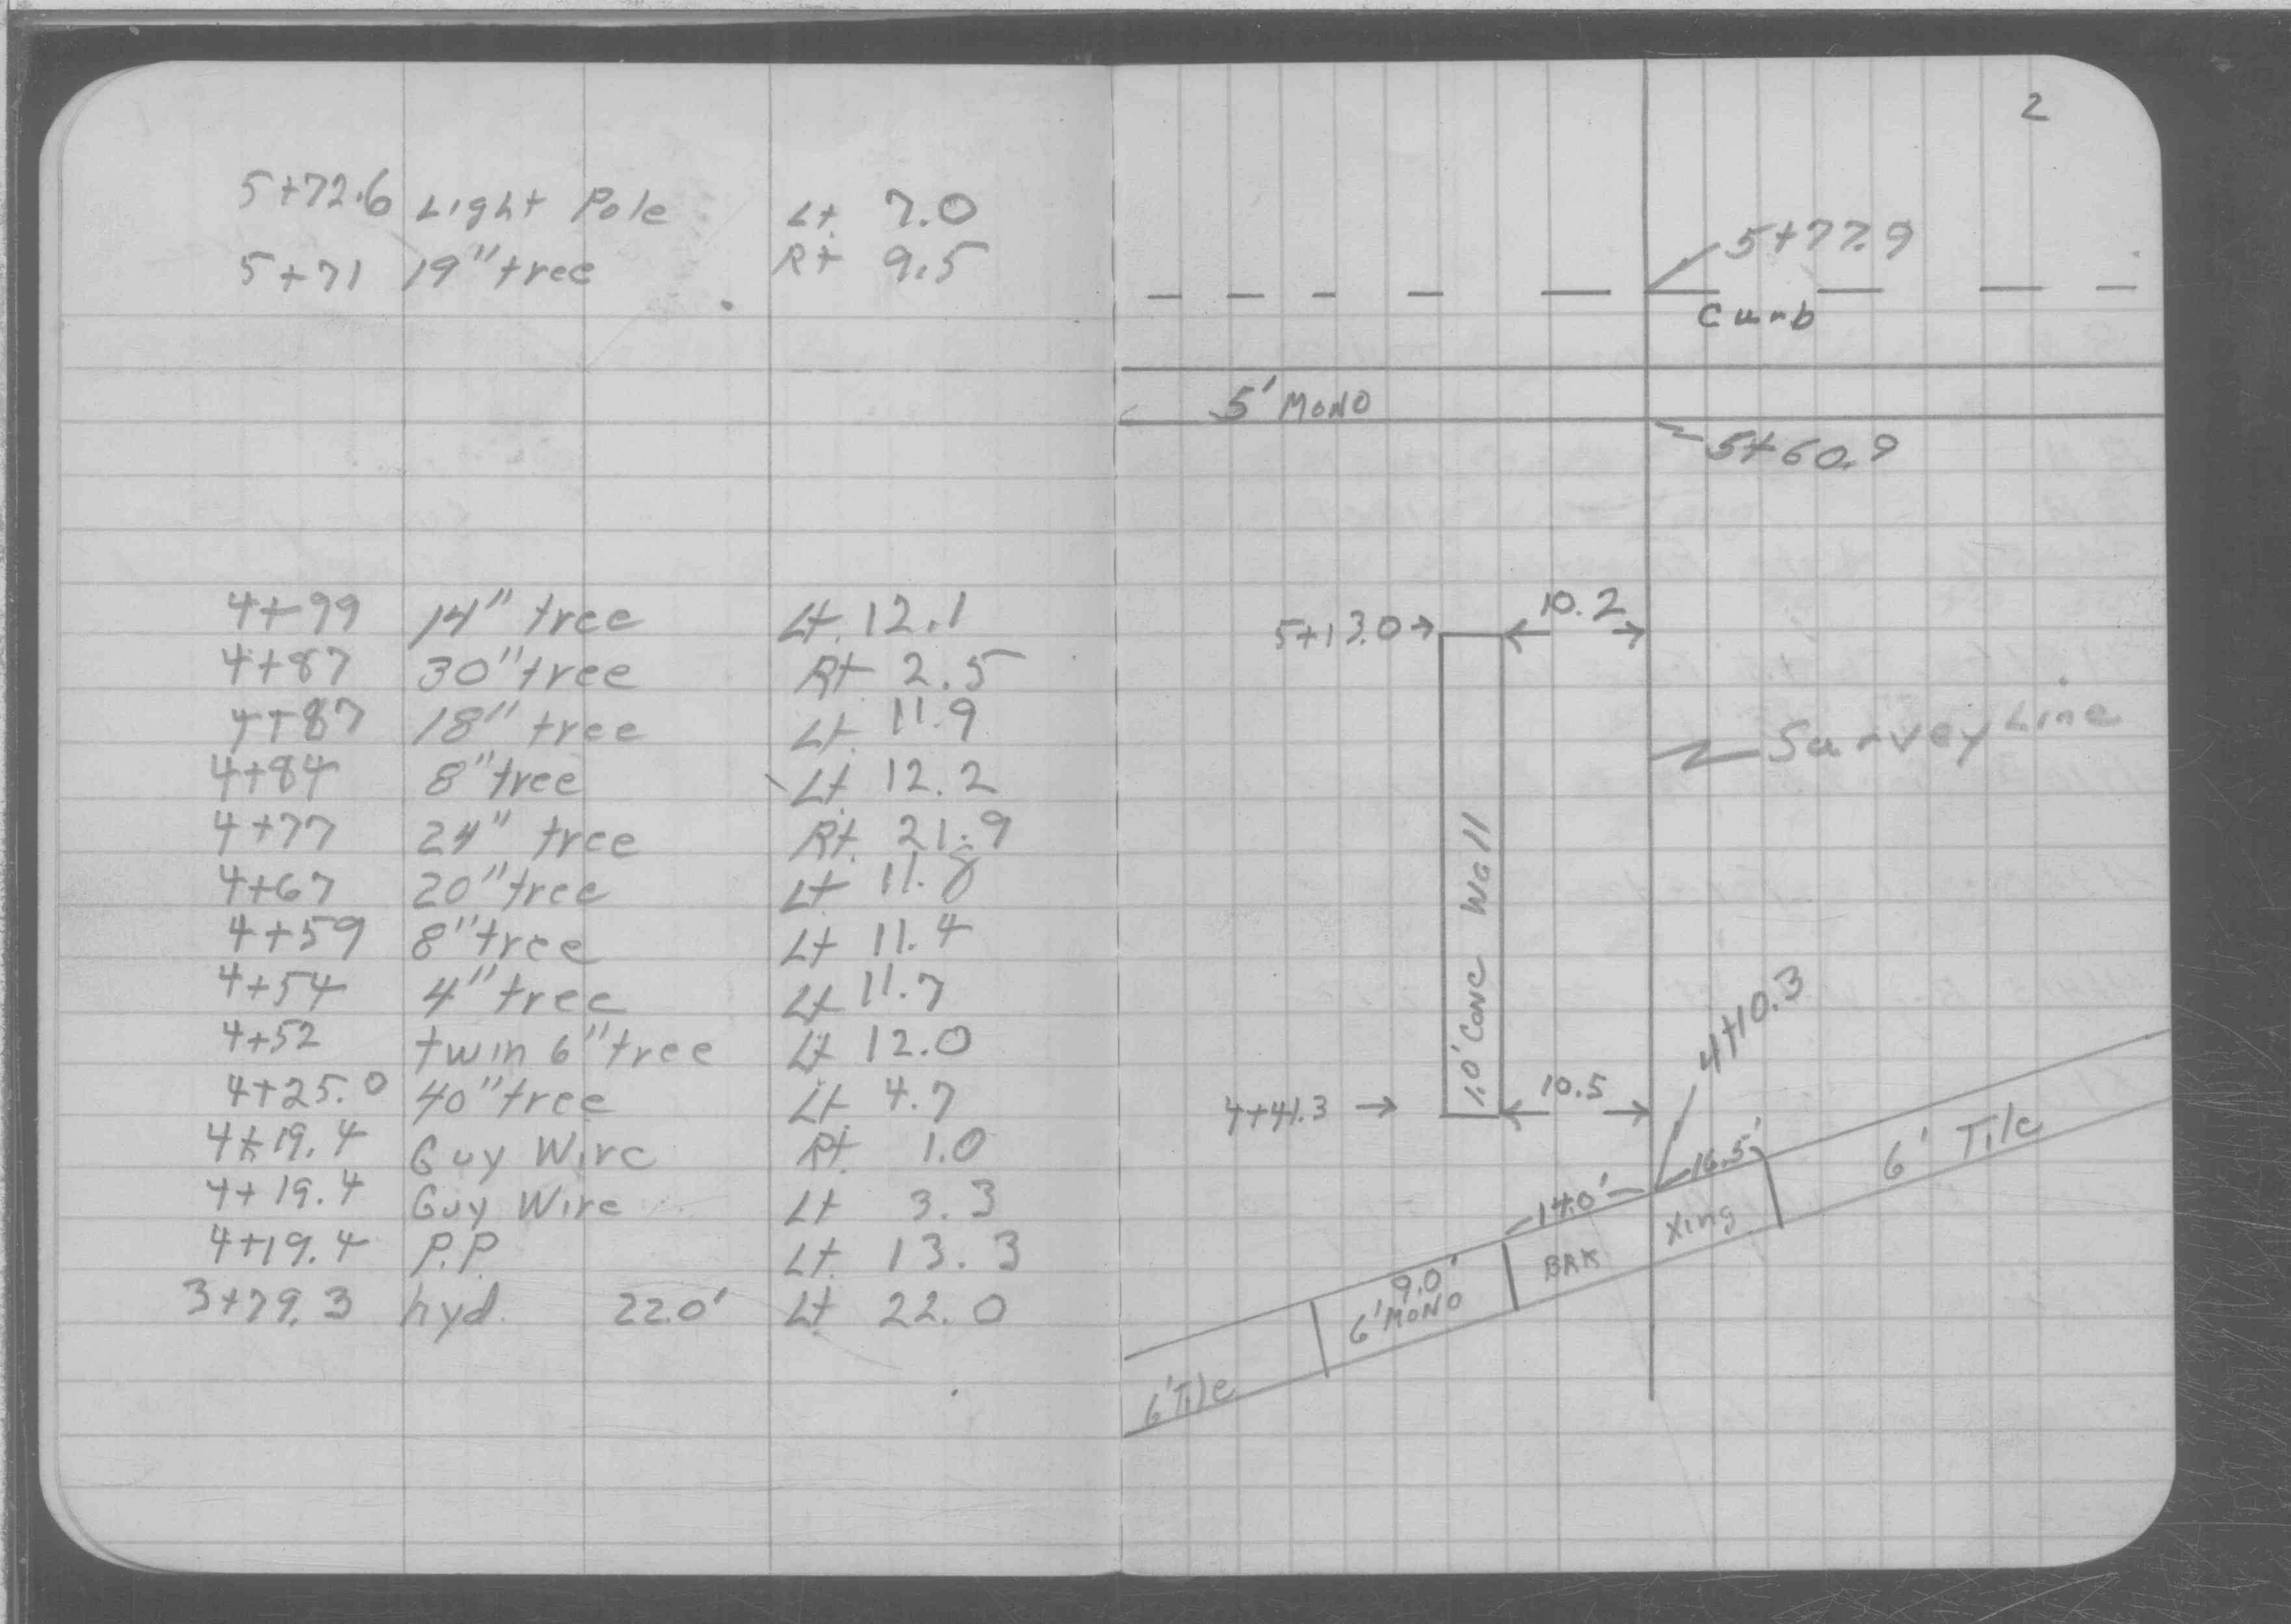 5+72.6 Light Pole Lt. 7.0
5+71 19" tree Rt 9.5
4+99 14" tree Lt. 12.1
4+87 30" tree Rt 2.5
4+87 18" tree Lt. 11.9
4+84 8" tree Lt. 12.2
4+77 24" tree Rt. 21.9
4+67 20" tree Lt 11.8
4+59 8" tree Lt 11.4
4+54 4" tree Lt 11.7
4+52 twin 6" tree Lt 12.0
4+25.0 40" tree Lt 4.7
4+19.4 Guy Wire Rt. 1.0
4+19.4 Guy Wire Lt 3.3
4+19.4 P.P. Lt. 13.3
3+79.3 hyd. 22.0' Lt 22.0
2
5+77.9
Curb
5' MONO
5+60.9
5+13.0 → 10.2
Survey Line
1.0' Conc Wall
4+10.3
4+41.3 → 10.5
16.5'
6' Tile
14.0'
Xing
BRK
9.0'
6' MONO
6' Tile